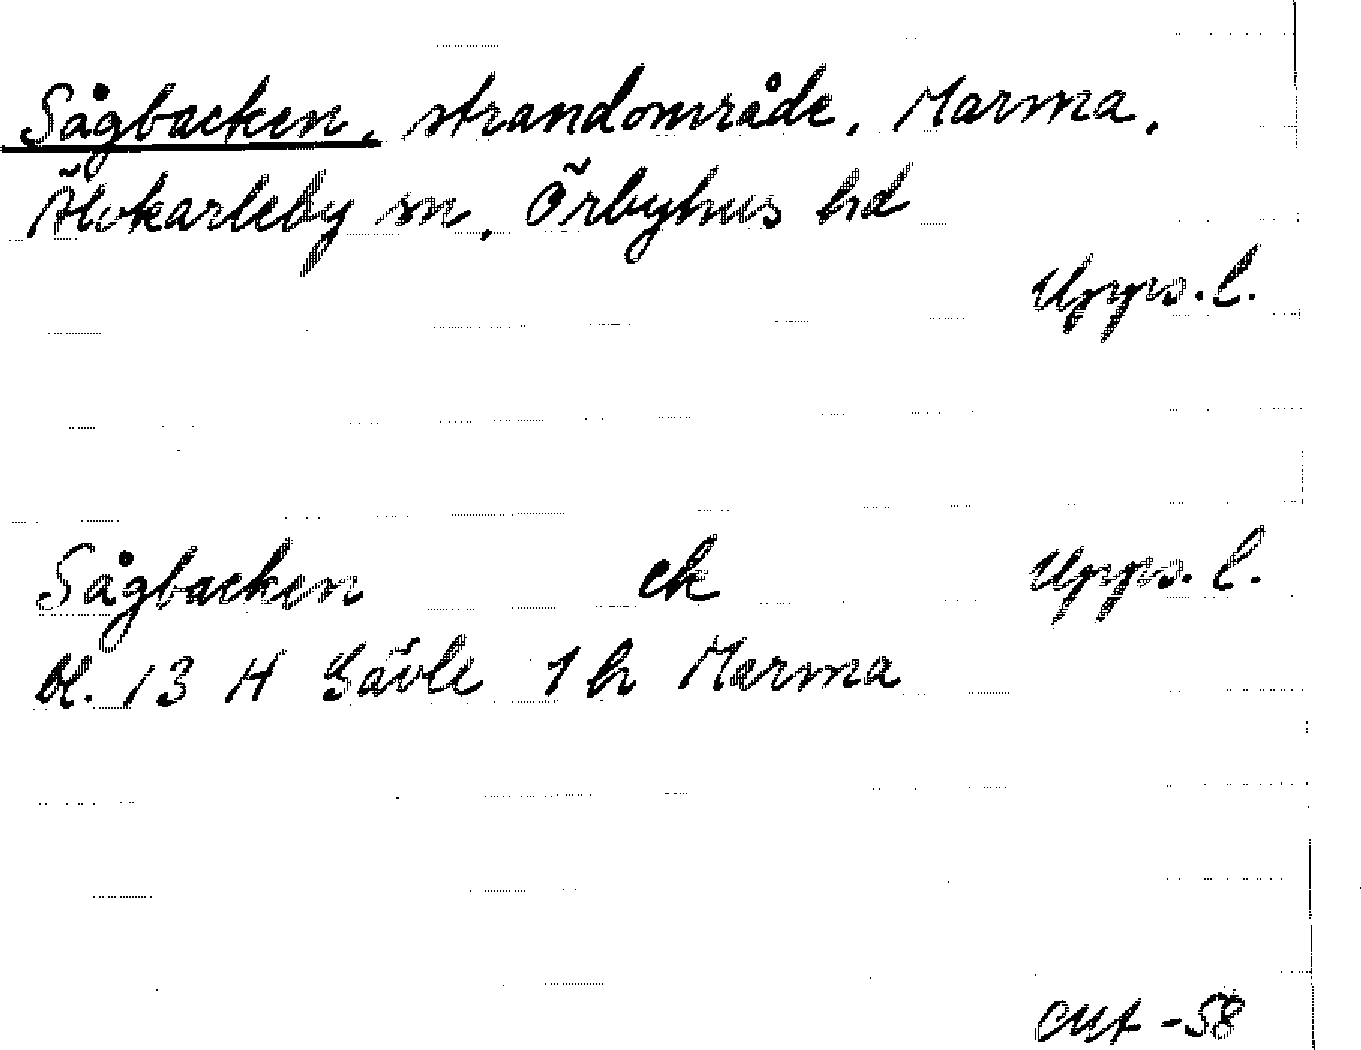 Sågbacken, strandområde, Marma,
Älvkarleby sn, Örbyhus hd
Upps. l.
Sågbacken ek Upps. l.
bl. 13 H Gävle 1 h Marma
-58